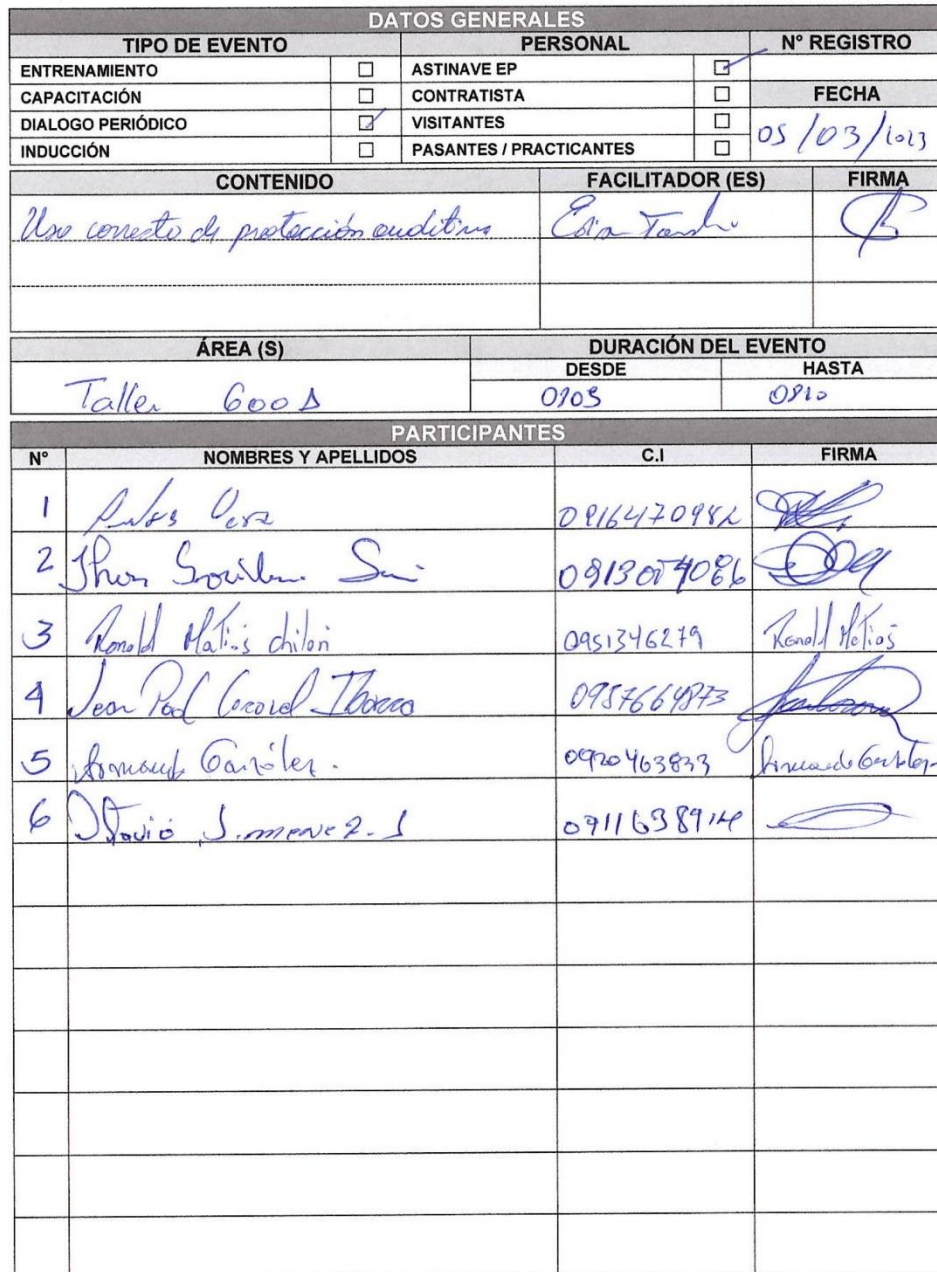 DATOS GENERALES
TIPO DE EVENTO PERSONAL N° REGISTRO
ENTRENAMIENTO ASTINAVE EP
CAPACITACIÓN CONTRATISTA FECHA
DIALOGO PERIÓDICO VISITANTES 05/03/2023
INDUCCIÓN PASANTES / PRACTICANTES
CONTENIDO FACILITADOR (ES) FIRMA
Uso correcto de protección auditiva
ÁREA (S) DURACIÓN DEL EVENTO
DESDE HASTA
Taller 600 0810
PARTICIPANTES
N° NOMBRES Y APELLIDOS C.I FIRMA
1 Vera
2 Jhon
3 Ronald Matias chilan 0951346279 Ronald Matias
4 Jean Pool Coronel Ibarra
5 Armando González. 0920463833 Armando González
6 Otavio Jimenez. J